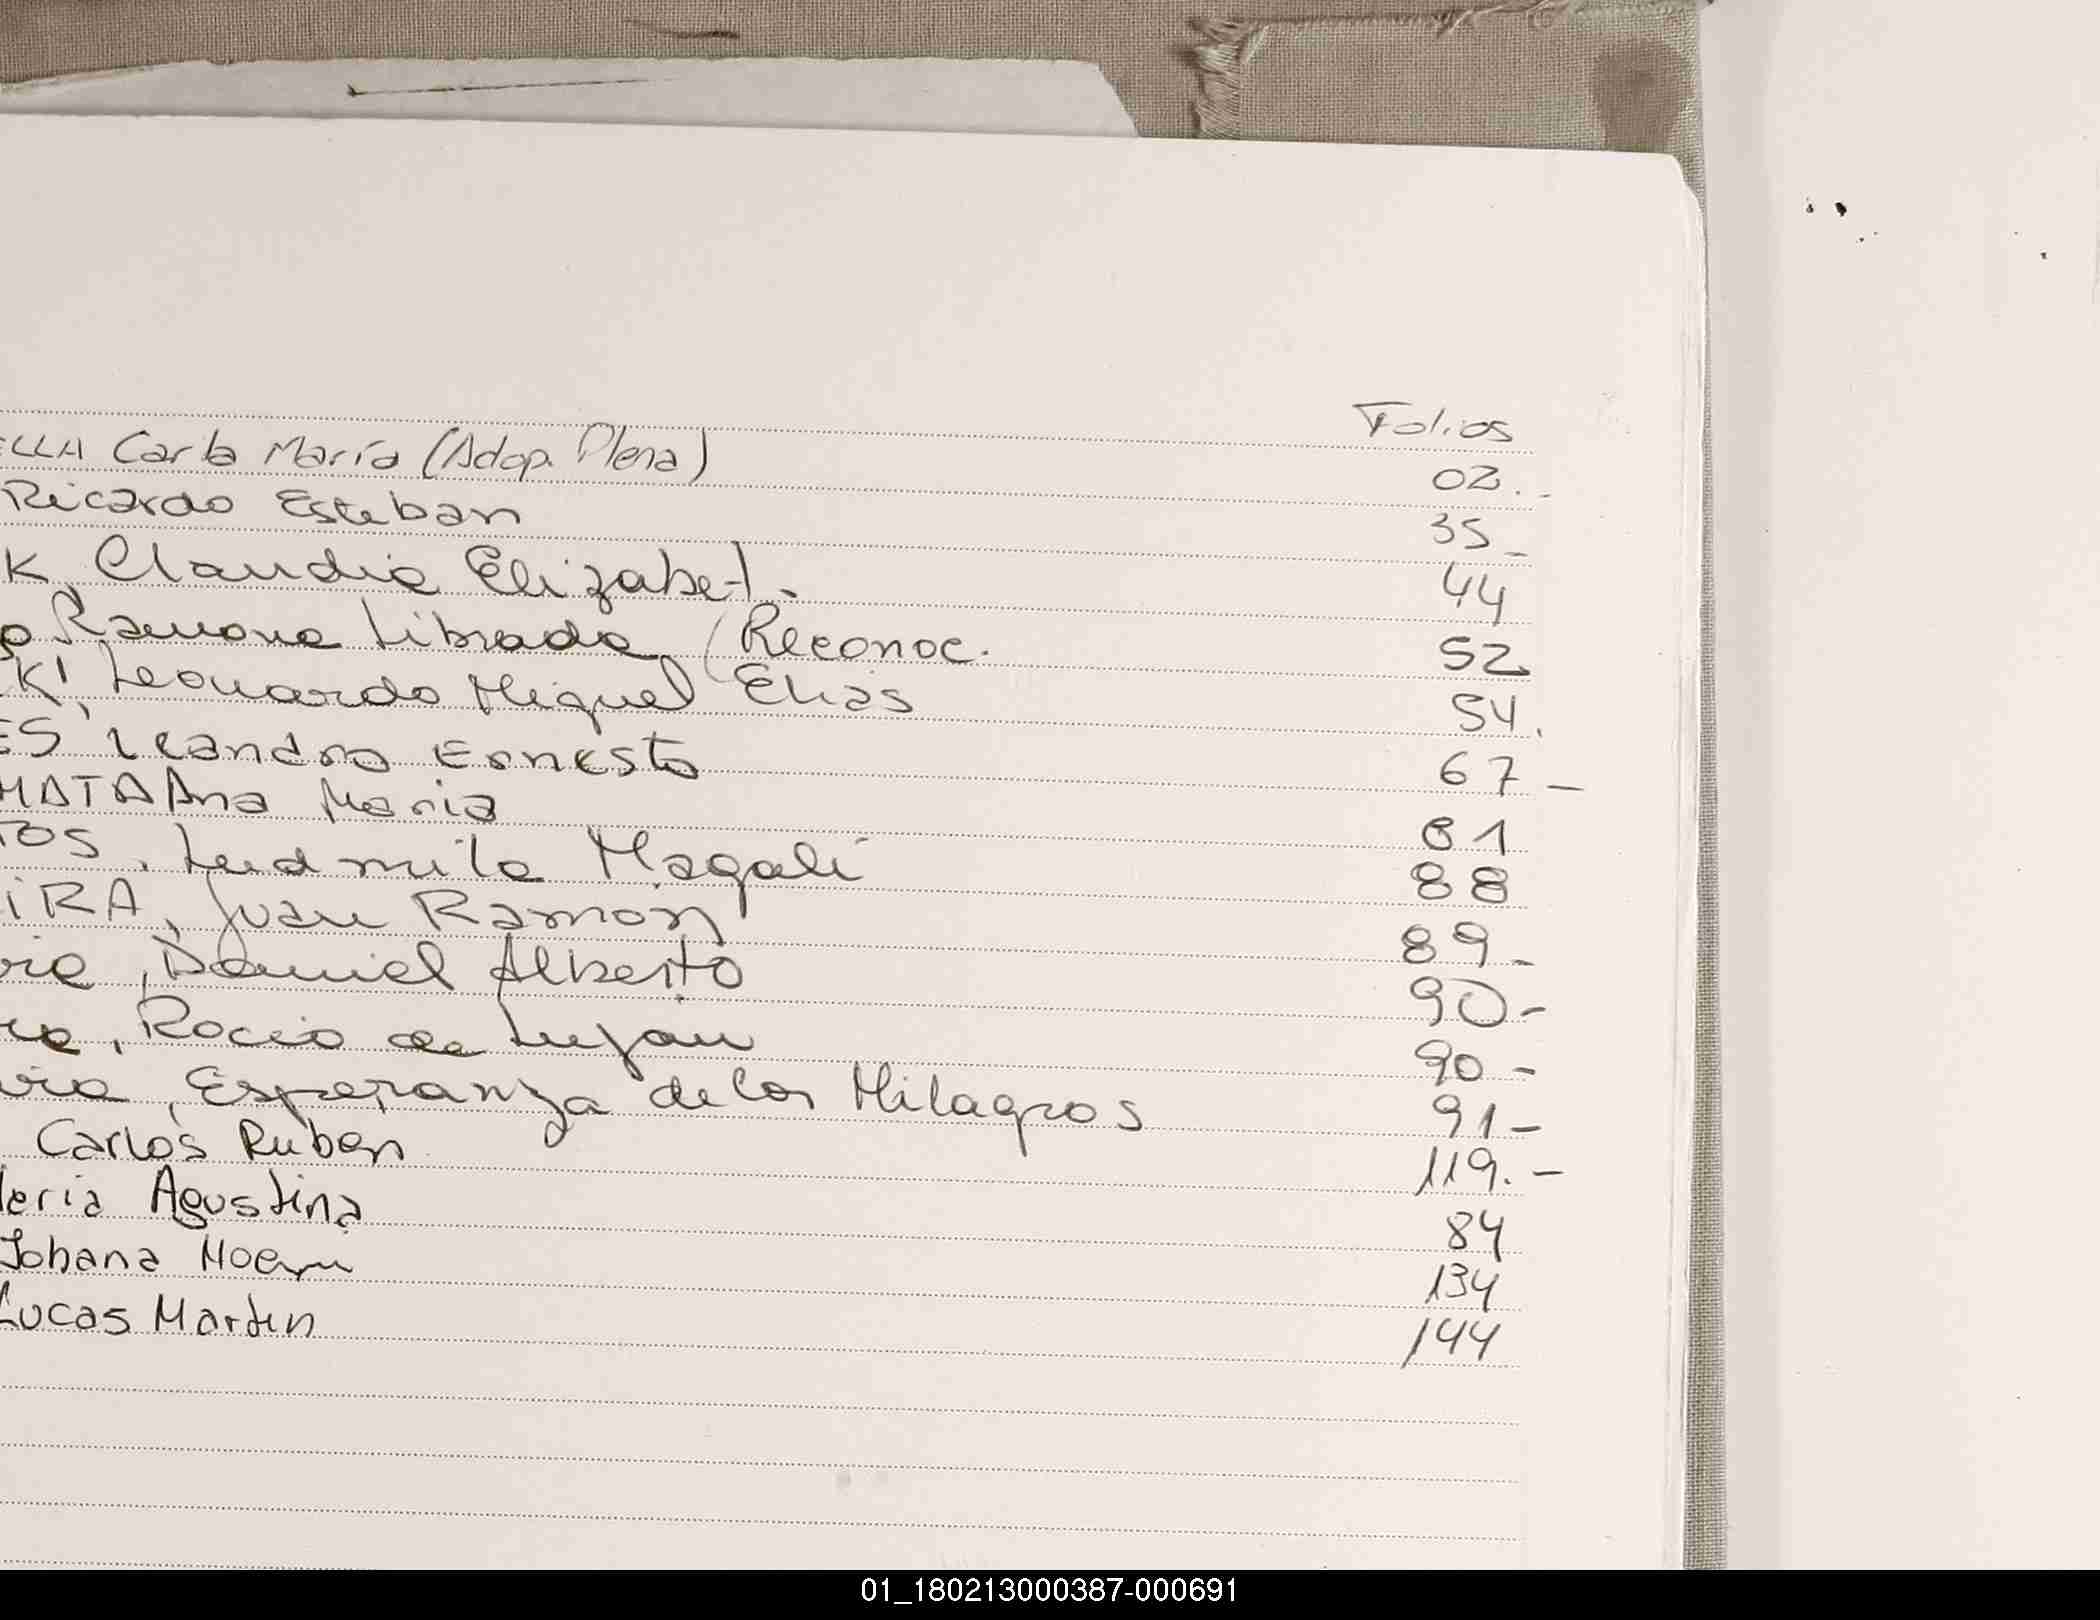 Folios
ELLA Carla María (Adop. Plena) 02.-
Ricardo Esteban 35-
K, Claudia Elizabet. 44
o Ramona Librada (Reconoc. 52
KI, Leonardo Miguel Elias 54.
ES, Leandro Ernesto 67-
MATA Ana Maria 81
TOS, Ludmila Magalí 88
iRA, Juan Ramón 89-
via, Daniel Alberto 90-
Rocío de Lujan 90-
via, Esperanza de los Milagros 91-
Carlos Ruben 119.-
leria Agustina 84
Johana Noemi 134
Lucas Martin 144
01_180213000387-000691